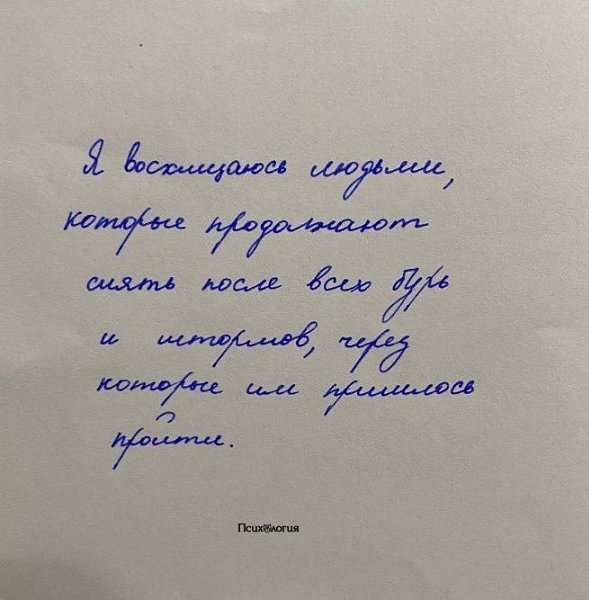 Я восхищаюсь людьми,
которые продолжают
сиять после всех бурь
и штормов, через
которые им пришлось
пройти.
Психология